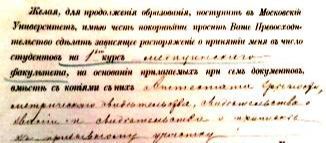 Желая, для продолженія образованія, поступить въ Московскій
Университетъ, имѣю честь покорнѣйше просить Ваше Превосходи-
тельство сдѣлать зависящее распоряженіе о принятіи меня въ число
студентовъ на 1й курсъ медицинскаго
факультета, на основаніи прилагаемыхъ при семъ документовъ,
вмѣстѣ съ копіями съ нихъ Аттестата зрѣлости,
метрическаго свидѣтельства, свидѣтельства о
званіи и свидѣтельства о припискѣ
къ призывному участку